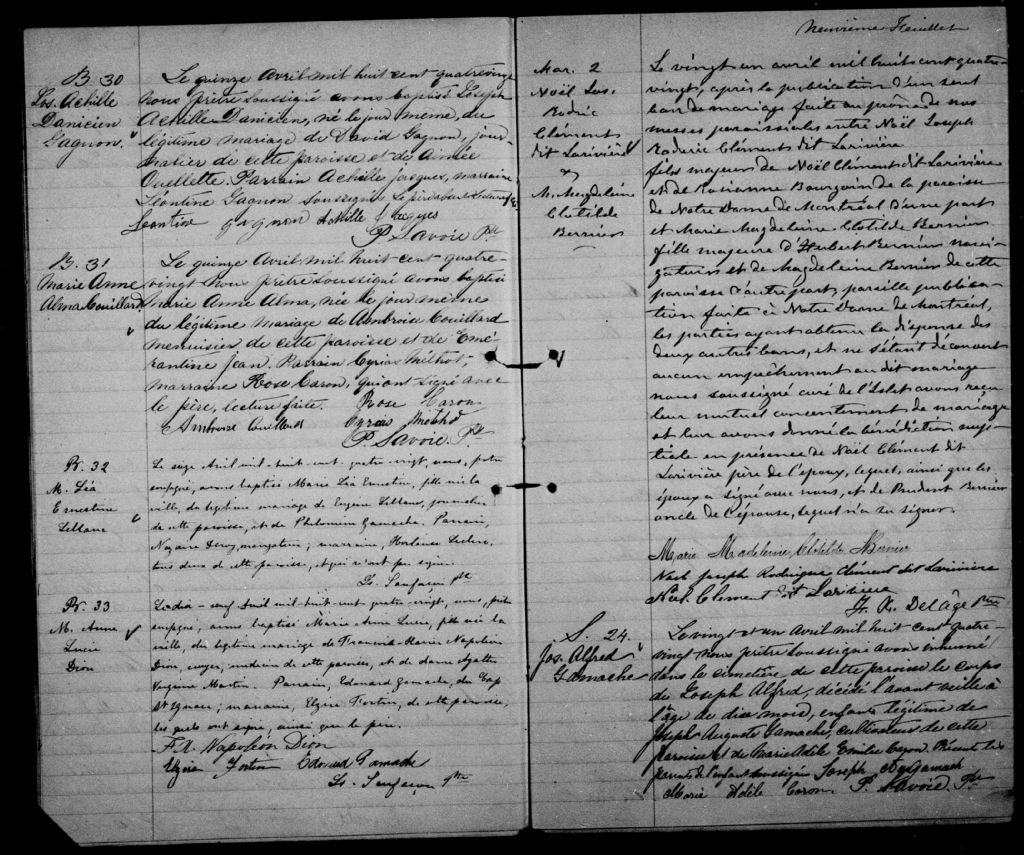 B. 30
Jos. Achille
Danicien
Gagnon.
Le quinze Avril mil huit cent quatre vingt
nous prêtre soussigné avons baptisé Joseph
Achille Danicien, né le jour même, du
légitime mariage de David Gagnon, jour-
nalier de cette paroisse et de Aimée
Ouellette. Parrain Achille Jacques, marraine
Léontine Gagnon soussignés le père
Leontine Gagnon Achille Jacques
P. Savoie Ptre
B. 31
Marie Anne
Alma Couillard
Le quinze Avril mil huit-cent-quatre-
vingt Nous prêtre soussigné avons baptisé
Marie Anne Alma, née le jour même
du légitime mariage de Ambroise Couillard
menuisier de cette paroisse et de Emé-
rantine Jean. Parrain Cyrias Méthot,
marraine Rose Caron, qui ont signé avec
le père, lecture faite. Rose Caron
Ambroise Couillard Cyrias Méthot
P. Savoie. Ptre
B. 32
M. Léa
Ernestine
Leblanc
Le seize Avril mil-huit-cent-quatre-vingt, nous, prêtre
soussigné, avons baptisé Marie Léa Ernestine, fille née la
veille, du légitime mariage de Eugène Leblanc, journalier
de cette paroisse, et de Philomène Gamache. Parrain,
Nazaire navigateur; marraine, Hortense Leclerc,
tous deux de cette paroisse, et qui n'ont pu signer.
Ls. Sanfaçon ptre
B. 33
M. Anne
Lucie
Dion
Le dix-neuf Avril mil-huit-cent-quatre-vingt, nous, prêtre
soussigné, avons baptisé Marie Anne Lucie, fille née la
veille, du légitime mariage de François-Xavier Napoléon
Dion, écuyer, médecin de cette paroisse, et de dame Agathe
Virginie Martin. Parrain, Edouard Gamache, du Cap
St Ignace; marraine, Elzire Fortin, de cette paroisse,
lesquels ont signé, ainsi que le père.
F. X. Napoléon Dion
Elzire Fortin Edouard Gamache
Ls. Sanfacon ptre
Neuvième Feuillet
Mar. 2
Noël Jos.
Rodric
Cléments
dit Larivière
&
M. Magdeleine
Clotilde
Bernier
Le vingt un avril mil huit cent quatre-
vingt, après la publication d'un seul
ban de mariage faite au prône de nos
messes paroissiales entre Noël Joseph
Roderic Cléments dit Larivière
fils majeur de Noël Clément dit Larivière
et de Rosianne Bourgoin de la paroisse
de Notre Dame de Montréal d'une part
et Marie Magdeleine Clotilde Bernier
fille majeure d'Hubert Bernier navi-
gateur et de Magdeleine Bernier de cette
paroisse d'autre part, pareille publica-
tion faite à Notre Dame de Montréal,
les parties ayant obtenu la dispense des
deux autres bans, et ne s'étant découvert
aucun empêchement au dit mariage
nous soussigné curé de l'Islet avons reçu
leur mutuel consentement de mariage
et leur avons donné la bénédiction nup-
tiale en présence de Noël Clément dit
Larivière père de l'époux, lequel, ainsi que les
époux a signé avec nous, et de Prudent Bernier
oncle de l'épouse, lequel n'a su signer.
Marie Madeleine, Clotilde Bernier
Noel Joseph Rodrigue Clément dit Larivière
Noel Clement dit Lariviere
F. X. Delâge Ptre
S. 24.
Jos. Alfred
Gamache
Le vingt et un Avril mil huit cent quatre-
vingt nous prêtre soussigné avons inhumé
dans le cimetière, de cette paroisse le corps
de Joseph Alfred, décédé l'avant veille à
l'âge de dix mois, enfant légitime de
Joseph Auguste Gamache, cultivateur de cette
paroisse et de Marie Adèle Emilie Caron. Présents les
parents de l'enfant soussignés Joseph Aug Gamach
Marie Adèle Caron. P. Savoie, Ptre